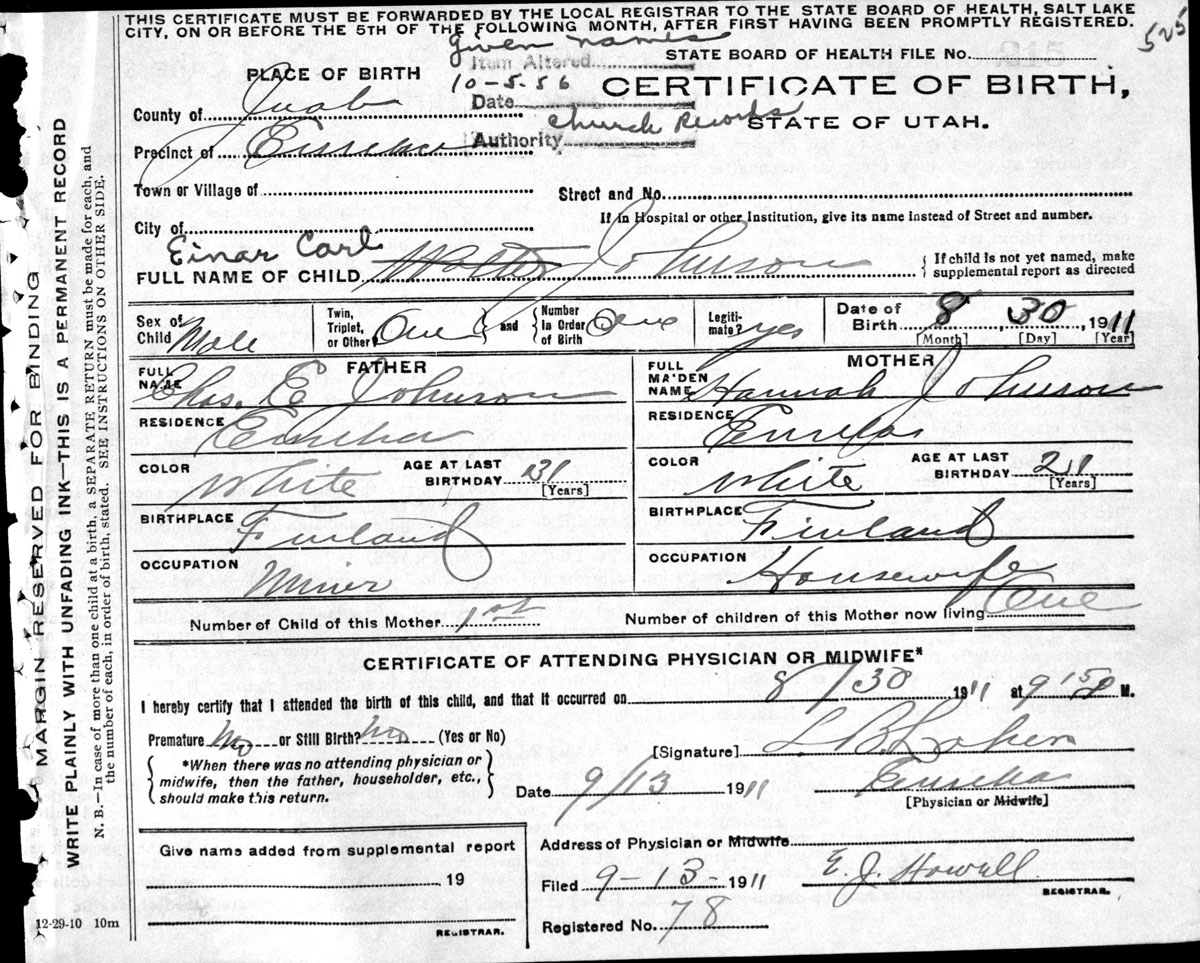 THIS CERTIFICATE MUST BE FORWARDED BY THE LOCAL REGISTRAR TO THE STATE BOARD OF HEALTH, SALT LAKE
CITY, ON OR BEFORE THE 5TH OF THE FOLLOWING MONTH, AFTER FIRST HAVING BEEN PROMPTLY REGISTERED.
525
given names
Item Altered
STATE BOARD OF HEALTH FILE No.
PLACE OF BIRTH
10-5-56
Date
CERTIFICATE OF BIRTH,
County of Juab
Church Records
Authority
STATE OF UTAH.
Precinct of Eureka
Town or Village of
Street and No.
If in Hospital or other Institution, give its name instead of Street and number.
City of
Einar Carl
FULL NAME OF CHILD Walter Johnson
{If child is not yet named, make
supplemental report as directed
Sex of Child Male
Twin, Triplet, or Other? One
and
Number In Order of Birth One
Legitimate? yes
Date of Birth 8, 30, 1911
[Month] [Day] [Year]
FATHER
FULL NAME Chas. E Johnson
RESIDENCE Eureka
COLOR White
AGE AT LAST BIRTHDAY 31
[Years]
BIRTHPLACE Finland
OCCUPATION Miner
MOTHER
FULL MAIDEN NAME Hannah Johnson
RESIDENCE Eureka
COLOR White
AGE AT LAST BIRTHDAY 21
[Years]
BIRTHPLACE Finland
OCCUPATION Housewife
Number of Child of this Mother 1st
Number of children of this Mother now living One
CERTIFICATE OF ATTENDING PHYSICIAN OR MIDWIFE*
I hereby certify that I attended the birth of this child, and that it occurred on 8/30 1911 at 9 15 P M.
Premature No or Still Birth? No (Yes or No)
*When there was no attending physician or
midwife, then the father, householder, etc.,
should make this return.
[Signature] L B
Date 9/13 1911
Eureka
[Physician or Midwife]
Give name added from supplemental report
19
REGISTRAR.
Address of Physician or Midwife
Filed 9-13-1911
E. J. Howell
REGISTRAR.
Registered No. 78
12-29-10 10m
MARGIN RESERVED FOR BINDING
WRITE PLAINLY WITH UNFADING INK—THIS IS A PERMANENT RECORD
N. B.—In case of more than one child at a birth, a SEPARATE RETURN must be made for each, and
the number of each, in order of birth, stated. SEE INSTRUCTIONS ON OTHER SIDE.